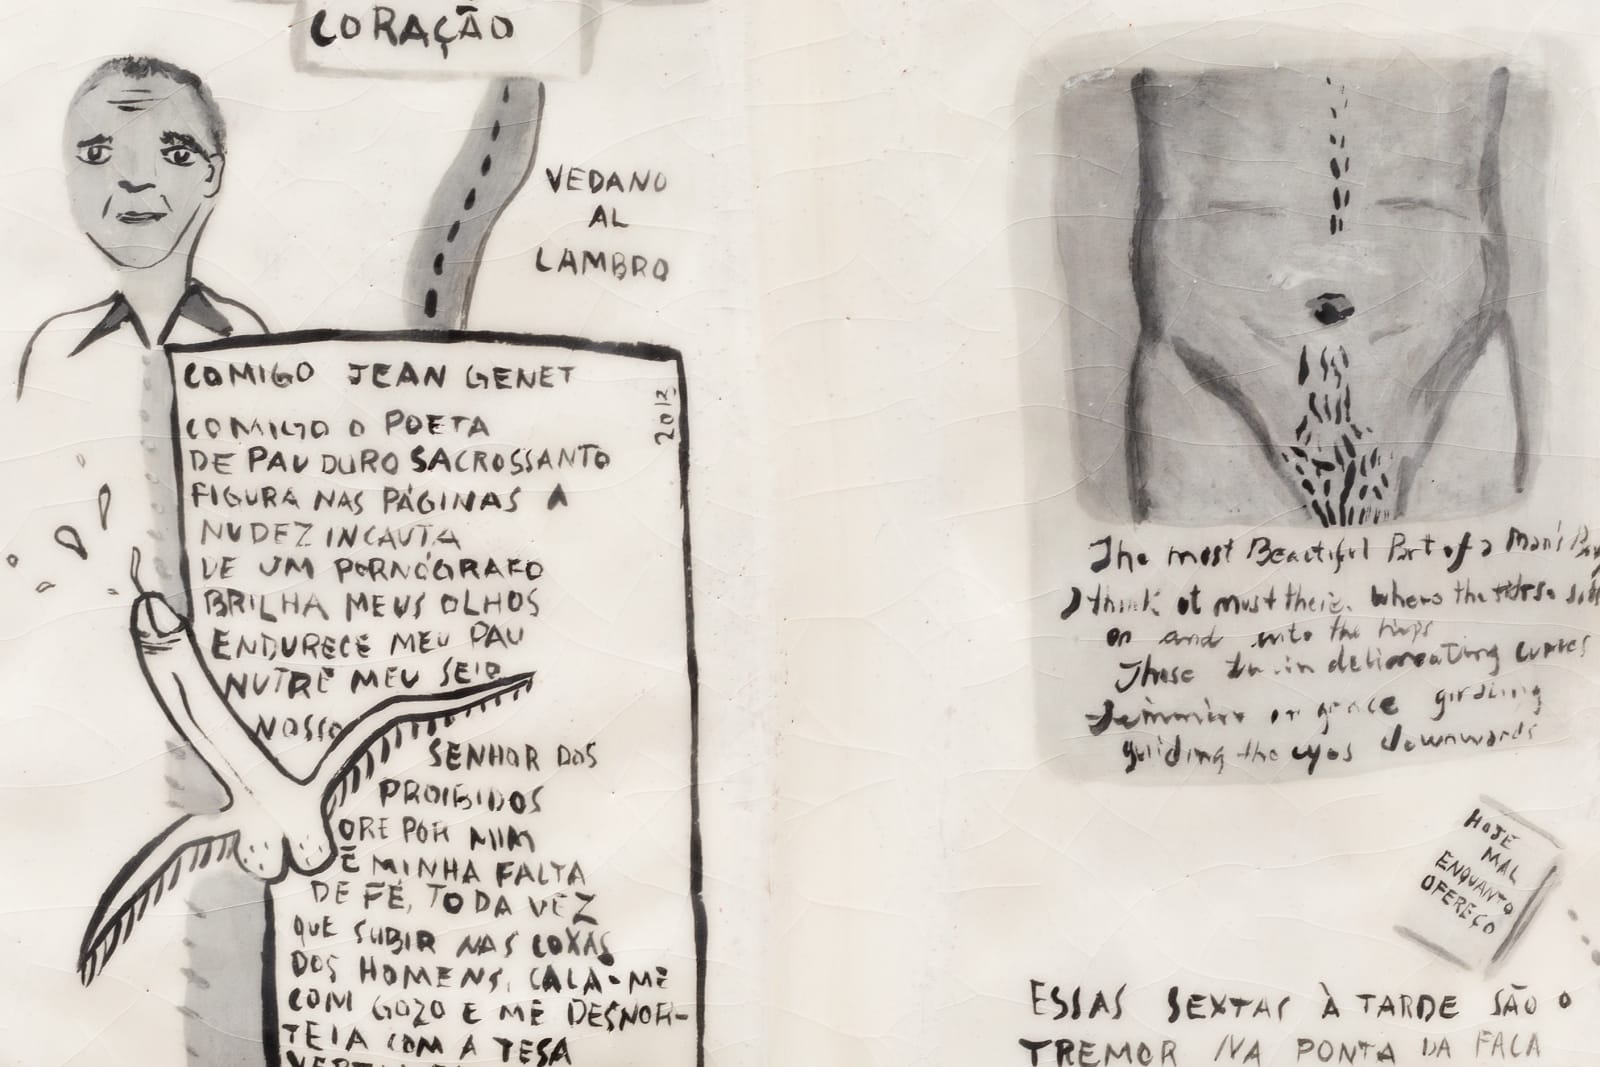 CORAÇÃO
VEDANO
AL
LAMBRO
COMIGO JEAN GENET
2013
COMIGO O POETA
DE PAU DURO SACROSSANTO
FIGURA NAS PÁGINAS A
NUDEZ INCAUTA
DE UM PORNÓGRAFO
BRILHA MEUS OLHOS
ENDURECE MEU PAU
NUTRE MEU SEIO
NOSSO
SENHOR DOS
PROIBIDOS
ORE POR MIM
E MINHA FALTA
DE FÉ, TODA VEZ
QUE SUBIR NAS COXAS
DOS HOMENS, CALA-ME
COM GOZO E ME DESNOR-
TEIA COM A TESA
The most Beautiful Part of a Man's
I think it must their. Where the
on and into the hips
These twin delineating curves
in grace girdling
guiding the eyes downwards
HOJE
MAL
ENQUANTO
OFEREÇO
ESSAS SEXTAS À TARDE SÃO O
TREMOR NA PONTA DA FACA